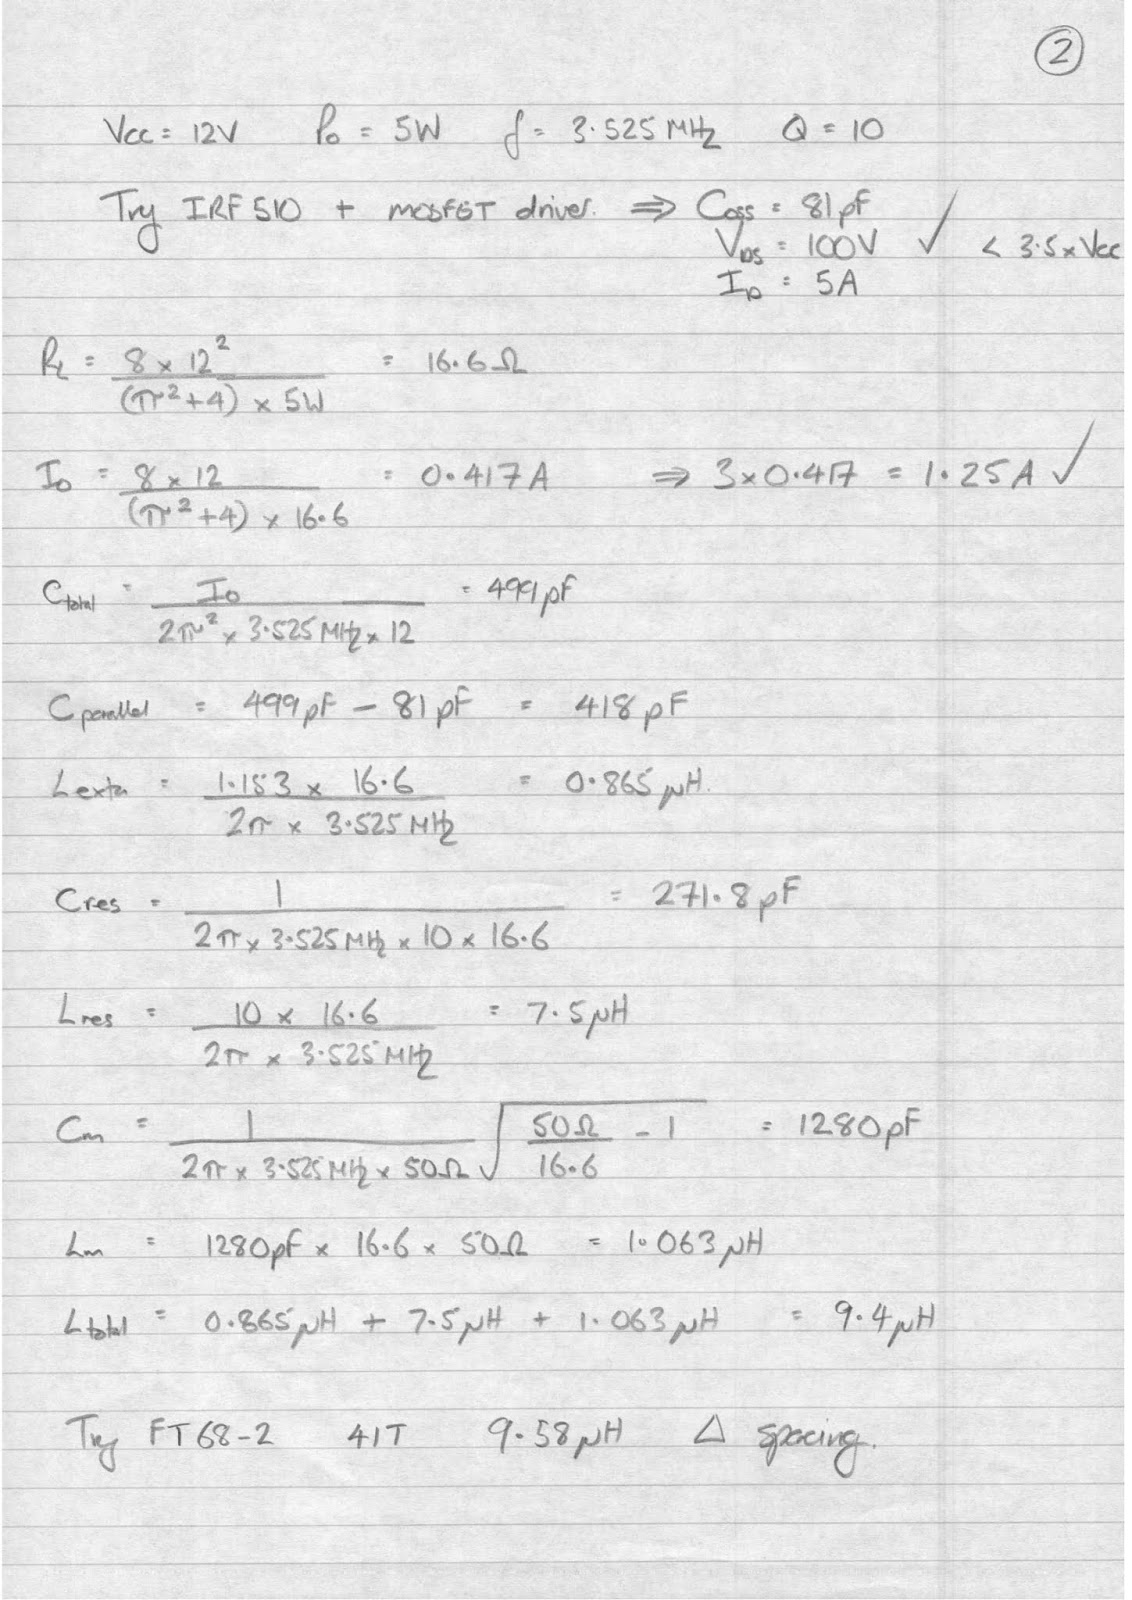 2
Vcc = 12V Po = 5W f = 3.525 MHz Q = 10
Try IRF510 + MOSFET driver. ⇒ Coss = 81pF ✓
VDS = 100V ✓ < 3.5 x Vcc
ID = 5A
RL = 8 x 12² / (π²+4) x 5W = 16.6Ω
Io = 8 x 12 / (π²+4) x 16.6 = 0.417A ⇒ 3x0.417 = 1.25A ✓
Ctotal = Io / 2π² x 3.525MHz x 12 = 499pF
Cparallel = 499pF - 81pF = 418pF
Lexta = 1.153 x 16.6 / 2π x 3.525MHz = 0.865μH.
Cres = 1 / 2π x 3.525MHz x 10 x 16.6 = 271.8pF
Lres = 10 x 16.6 / 2π x 3.525MHz = 7.5μH
Cm = 1 / 2π x 3.525MHz x 50Ω √ 50Ω / 16.6 - 1 = 1280pF
Lm = 1280pF x 16.6 x 50Ω = 1.063μH
Ltotal = 0.865μH + 7.5μH + 1.063μH = 9.4μH
Try FT68-2 41T 9.58μH Δ spacing.